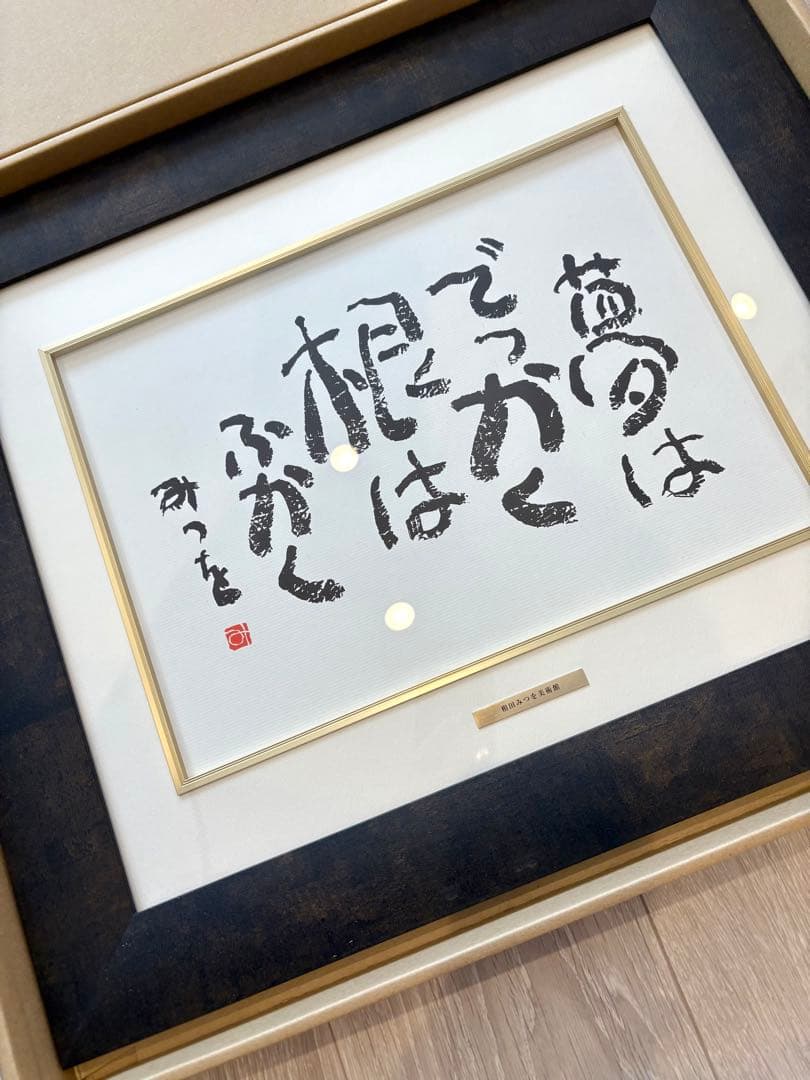 夢は
でっかく
根は
ふかく
みつを
相田みつを美術館